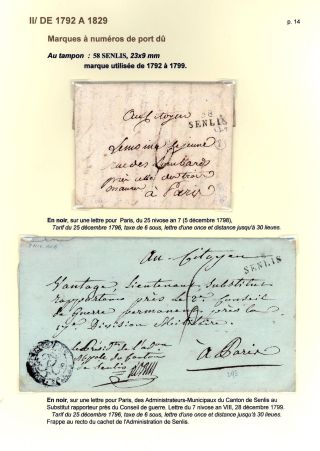 II/ DE 1792 A 1829
p. 14
Marques à numéros de port dû
Au tampon : 58 SENLIS, 23x9 mm
marque utilisée de 1792 à 1799.
58
SENLIS
Au Citoyen
Lemoine le jeune
rue des Lombard
près celle des trois
maures
à Paris
En noir, sur une lettre pour Paris, du 25 nivose an 7 (5 décembre 1798),
Tarif du 25 décembre 1796, taxe de 6 sous, lettre d'une once et distance jusqu'à 30 lieues.
Au Citoyen
SENLIS
Vantage, lieutenant, Substitut
rapporteur près le 2e Conseil
de Guerre permanent près la
17e Division Militaire.
à Paris
En noir, sur une lettre pour Paris, des Administrateurs-Municipaux du Canton de Senlis au
Substitut rapporteur près du Conseil de guerre. Lettre du 7 nivose an VIII, 28 décembre 1799.
Tarif du 25 décembre 1796, taxe de 6 sous, lettre d'une once et distance jusqu'à 30 lieues.
Frappe au recto du cachet de l'Administration de Senlis.